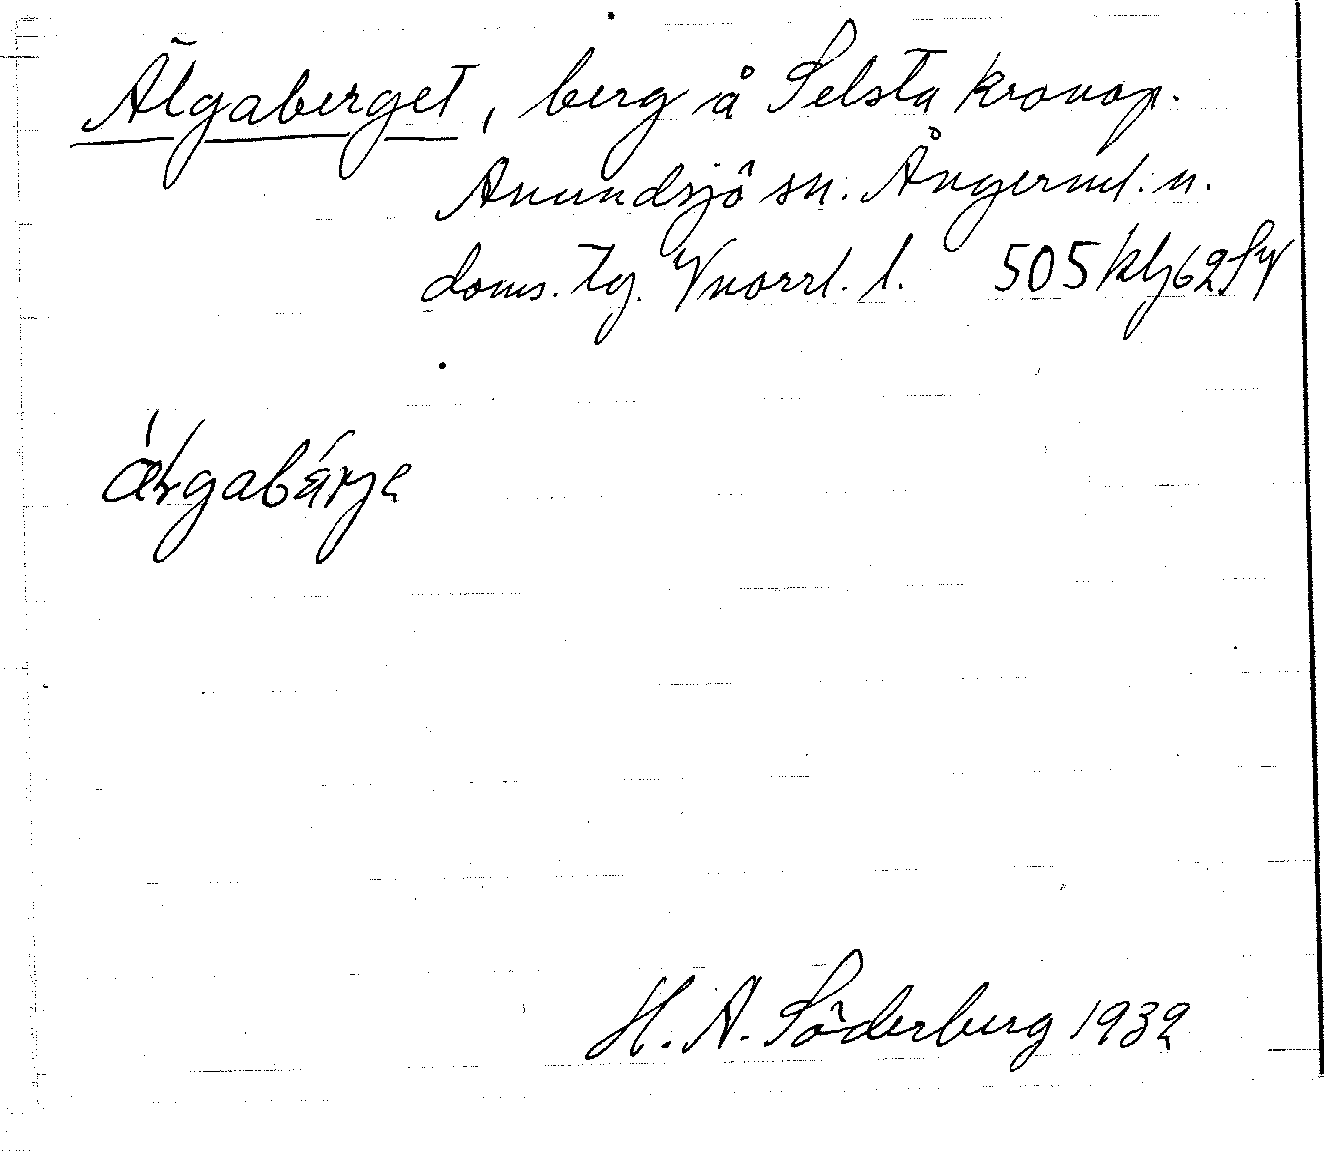 Älgaberget, berg å Selsta kronop.
Anundsjö sn. Ångerml. n.
doms. tg. Vnorrl. l. 505 klj 62 Sy
H. A. Söderberg 1932